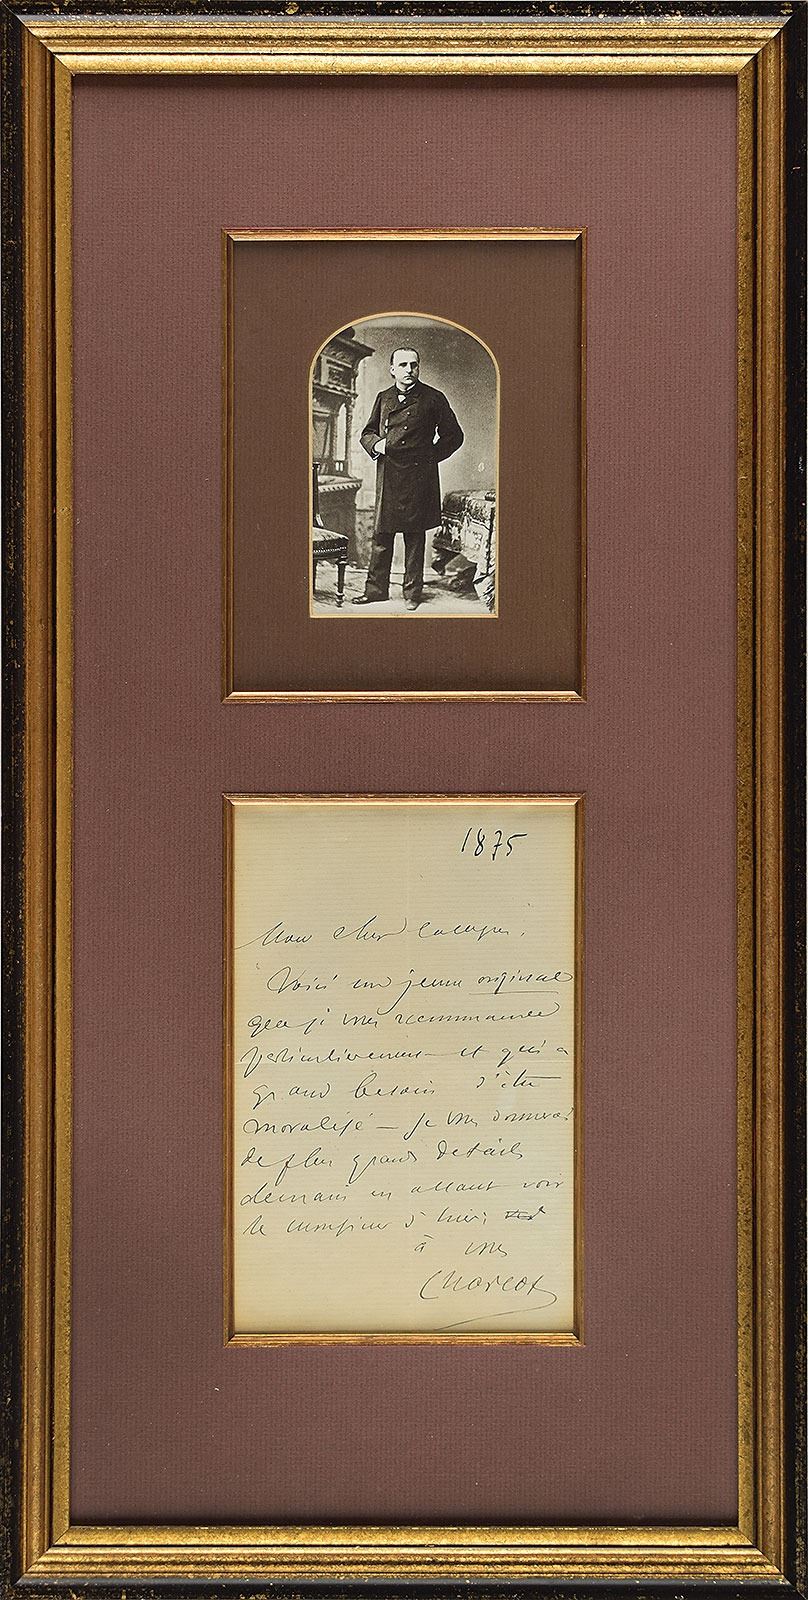 1875
Mon cher
Voici un jeune original
que je vous recommande
particulièrement et qui a
grand besoin d'être
moralisé — je vous donnerai
de plus grands détails
demain en allant voir
le monsieur d'hier.
à vous
Charcot